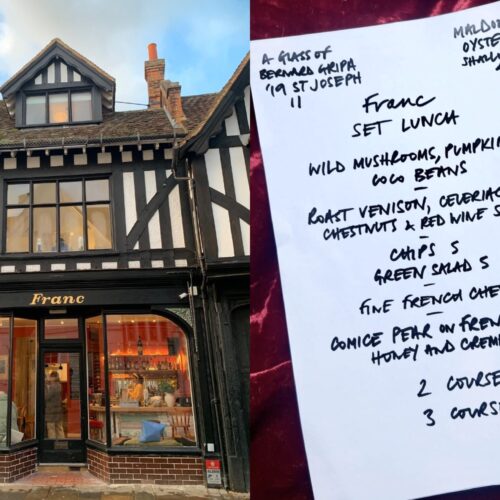 Franc
A GLASS OF
BERNARD GRIPA
'19 ST JOSEPH
11
MALDO
OYSTE
SHALL
Franc
SET LUNCH
WILD MUSHROOMS, PUMPKIN
COCO BEANS
ROAST VENISON, CELERIAC
CHESTNUTS & RED WINE S
CHIPS 5
GREEN SALAD 5
FINE FRENCH CHE
COMICE PEAR ON FREN
HONEY AND CREM
2 COURSE
3 COURS